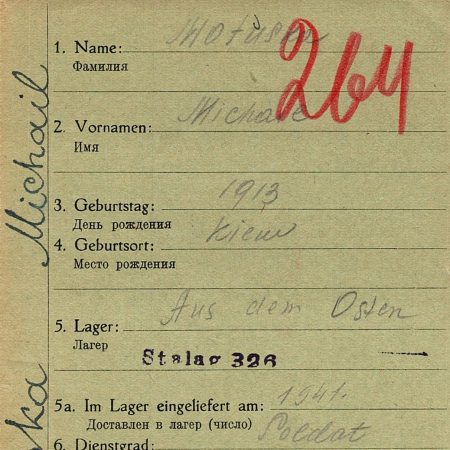 264
1. Name:
Фамилия
2. Vornamen: Michael
Имя
3. Geburtstag: 1913
День рождения
4. Geburtsort: Kiew
Место рождения
Aus dem Osten
5. Lager:
Лагерь
Stalag 326
5a. Im Lager eingeliefert am: 1941.
Доставлен в лагерь (число)
6. Dienstgrad: Soldat
Michail